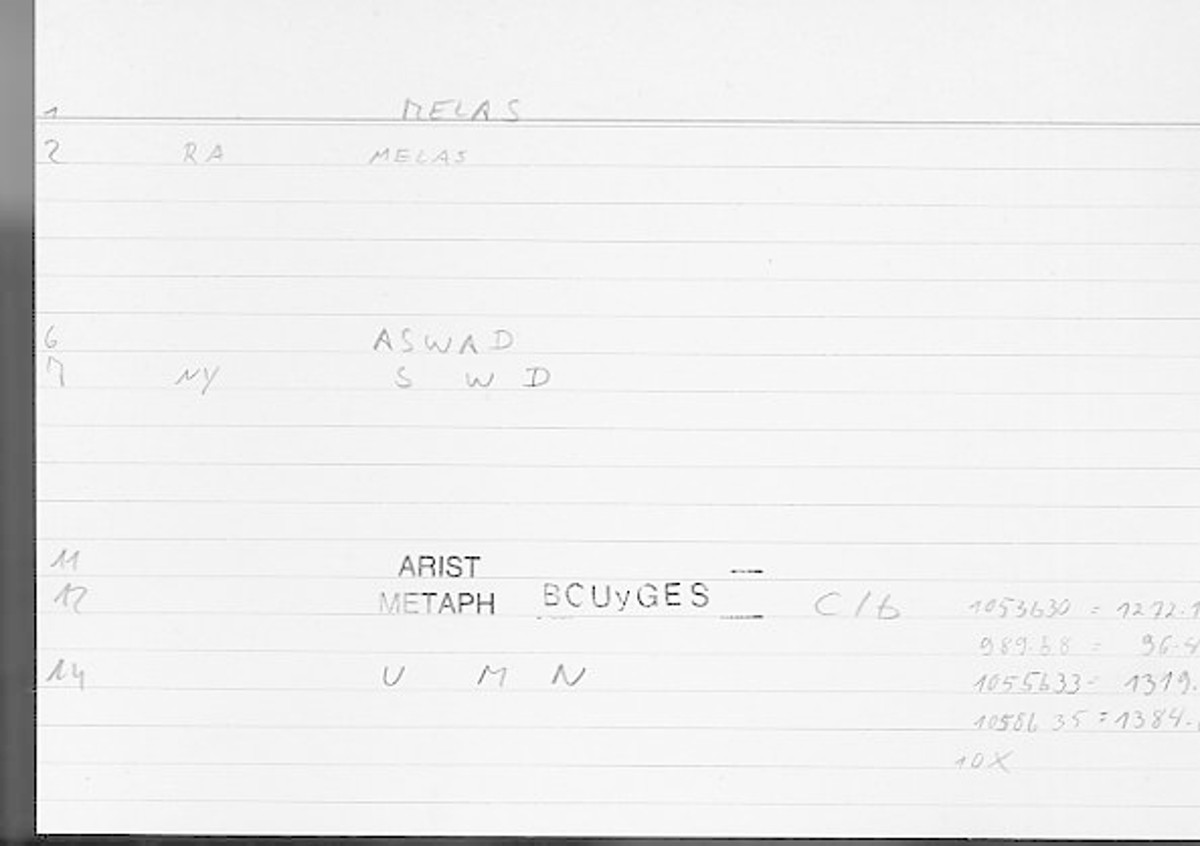 1 MELAS
2 RA MELAS
6 ASWAD
7 NY S W D
11 ARIST
12 METAPH BCUyGES C/b 1053b30 = 1272.1
989.b8 = 96.4
14 U M N 1055b33= 1319.
1056b 35 = 1384.
10X